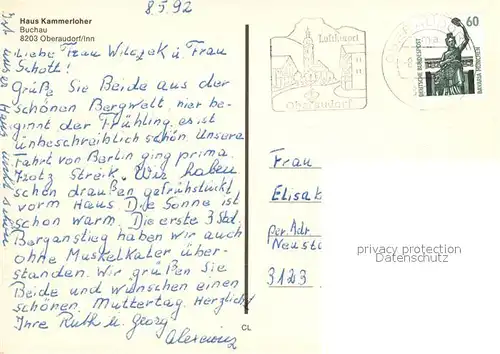 8.5.92
Haus Kammerloher
Buchau
8203 Oberaudorf/Inn
Liebe Frau Wilczek u. Frau
Schott!
Grüße Sie Beide aus der
schönen Bergwelt, hier be-
ginnt der Frühling, es ist
unbeschreiblich schön. Unsere
Fahrt von Berlin ging prima.
Trotz Streik. Wir haben
schon draußen gefrühstückt
vorm Haus. Die Sonne ist
schon warm. Die erste 3 Std.
Berganstieg haben wir auch
ohne Muskelkater über-
standen. Wir grüßen Sie
Beide und wünschen einen
schönen Muttertag. Herzlichst
Ihre Ruth u. Georg
Ist unser Haus nicht schön
CL
Luftkurort
Oberaudorf
60
DEUTSCHE BUNDESPOST
BAVARIA MÜNCHEN
Frau
Elisab
per. Adr
Neusta
3123
privacy protection
Datenschutz